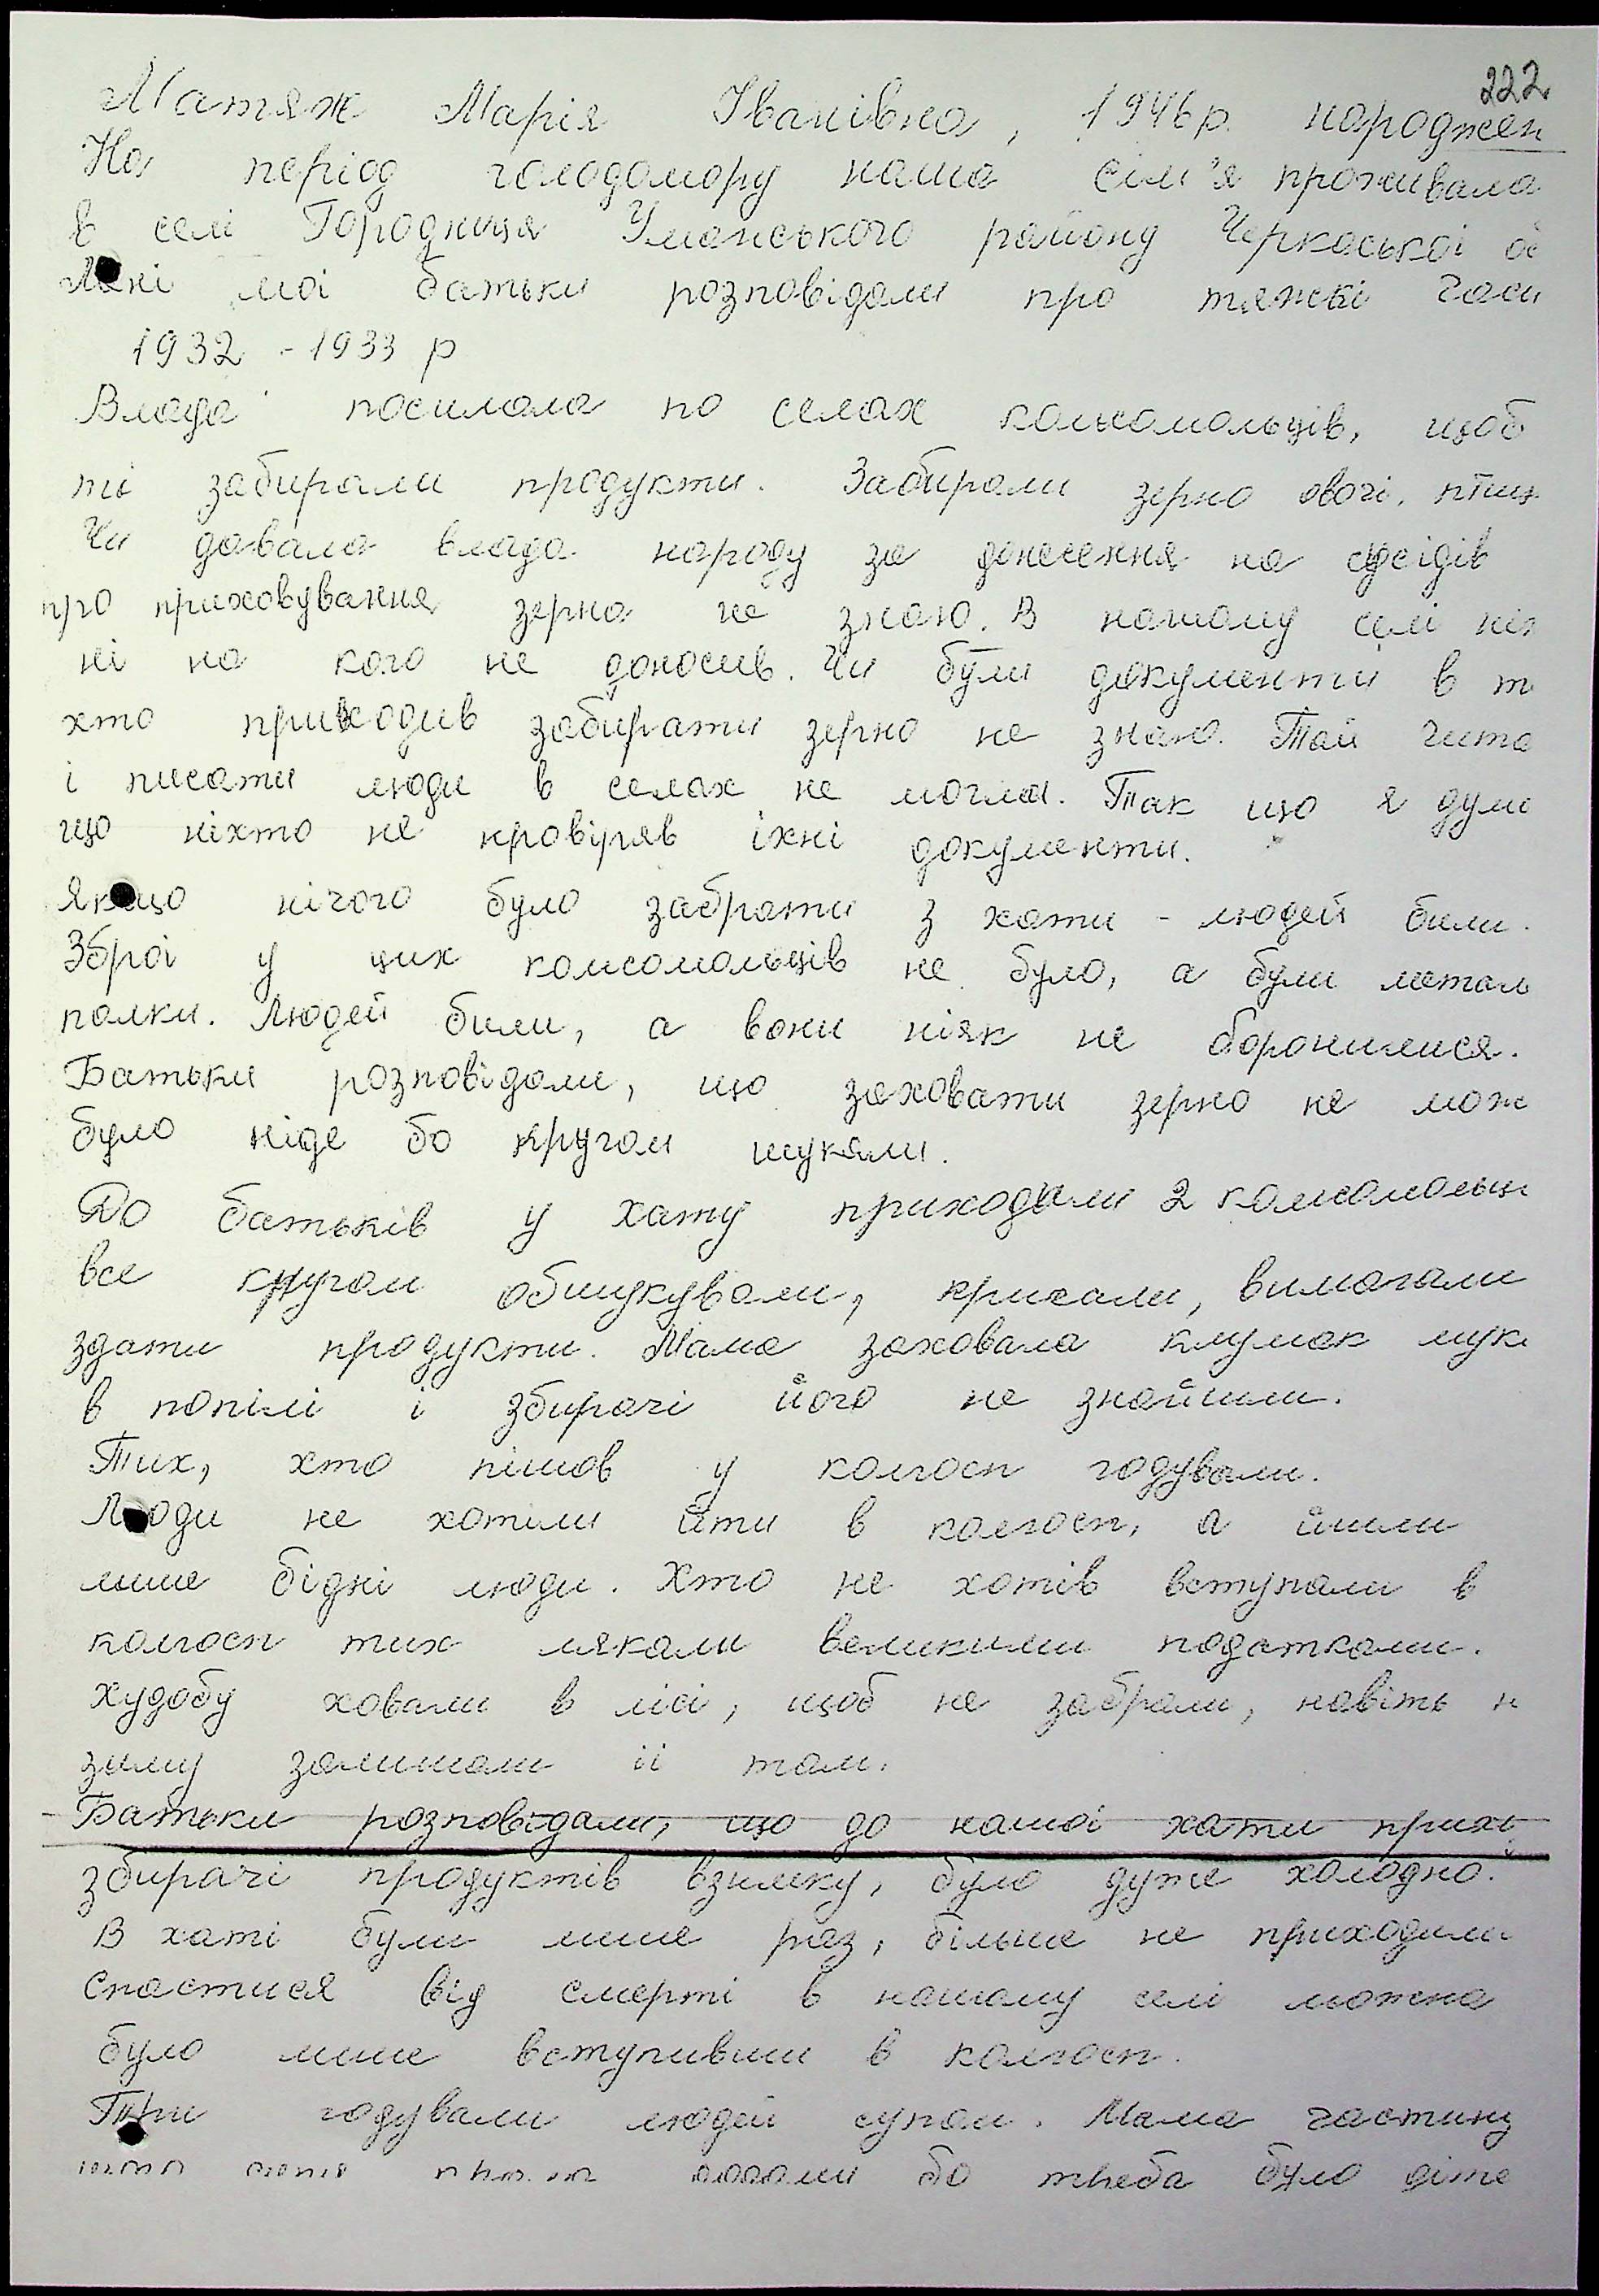 222
Матяж Марія Іванівна, 1946р. народжен
На період голодомору наша сім'я проживала
в селі Городниця Уманського району Черкаської об
Мені мої батьки розповідали про тяжкі часи
1932 - 1933 р
Влада посилала по селах комсомольців, щоб
ті забирали продукти. Забирали зерно овочі, птиц
Чи давала влада народу за донесення на сусідів
про приховування зерна не знаю. В нашому селі ніх
ні на кого не доносив. Чи були документи в т
хто приходив забирати зерно не знаю. Тай чита
і писати люди в селах не могли. Так що я дума
що ніхто не провіряв їхні документи.
Якщо нічого було забрати з хати - людей били.
Зброї у цих комсомольців не було, а були метал
палки. Людей били, а вони ніяк не боронилися.
Батьки розповідали, що заховати зерно не мож
було ніде бо кругом шукали.
До батьків у хату приходили 2 комсомольці
все кругом обшукували, кричали, вимагали
здати продукти. Мама заховала клумак муки
в попілі і збирачі його не знайшли.
Тих, хто пішов у колгосп годували.
Люди не хотіли йти в колгосп, а йшли
лише бідні люди. Хто не хотів вступали в
колгосп тих лякали великими податками.
Худобу ховали в лісі, щоб не забрали, навіть н
зиму залишали її там.
Батьки розповідали, що до нашої хати прихо
збирачі продуктів взимку, було дуже холодно.
В хаті були лише раз, більше не приходили
Спастися від смерті в нашому селі можна
було лише вступивши в колгосп.
Там годували людей супом. Мама частину
бо треба було діте